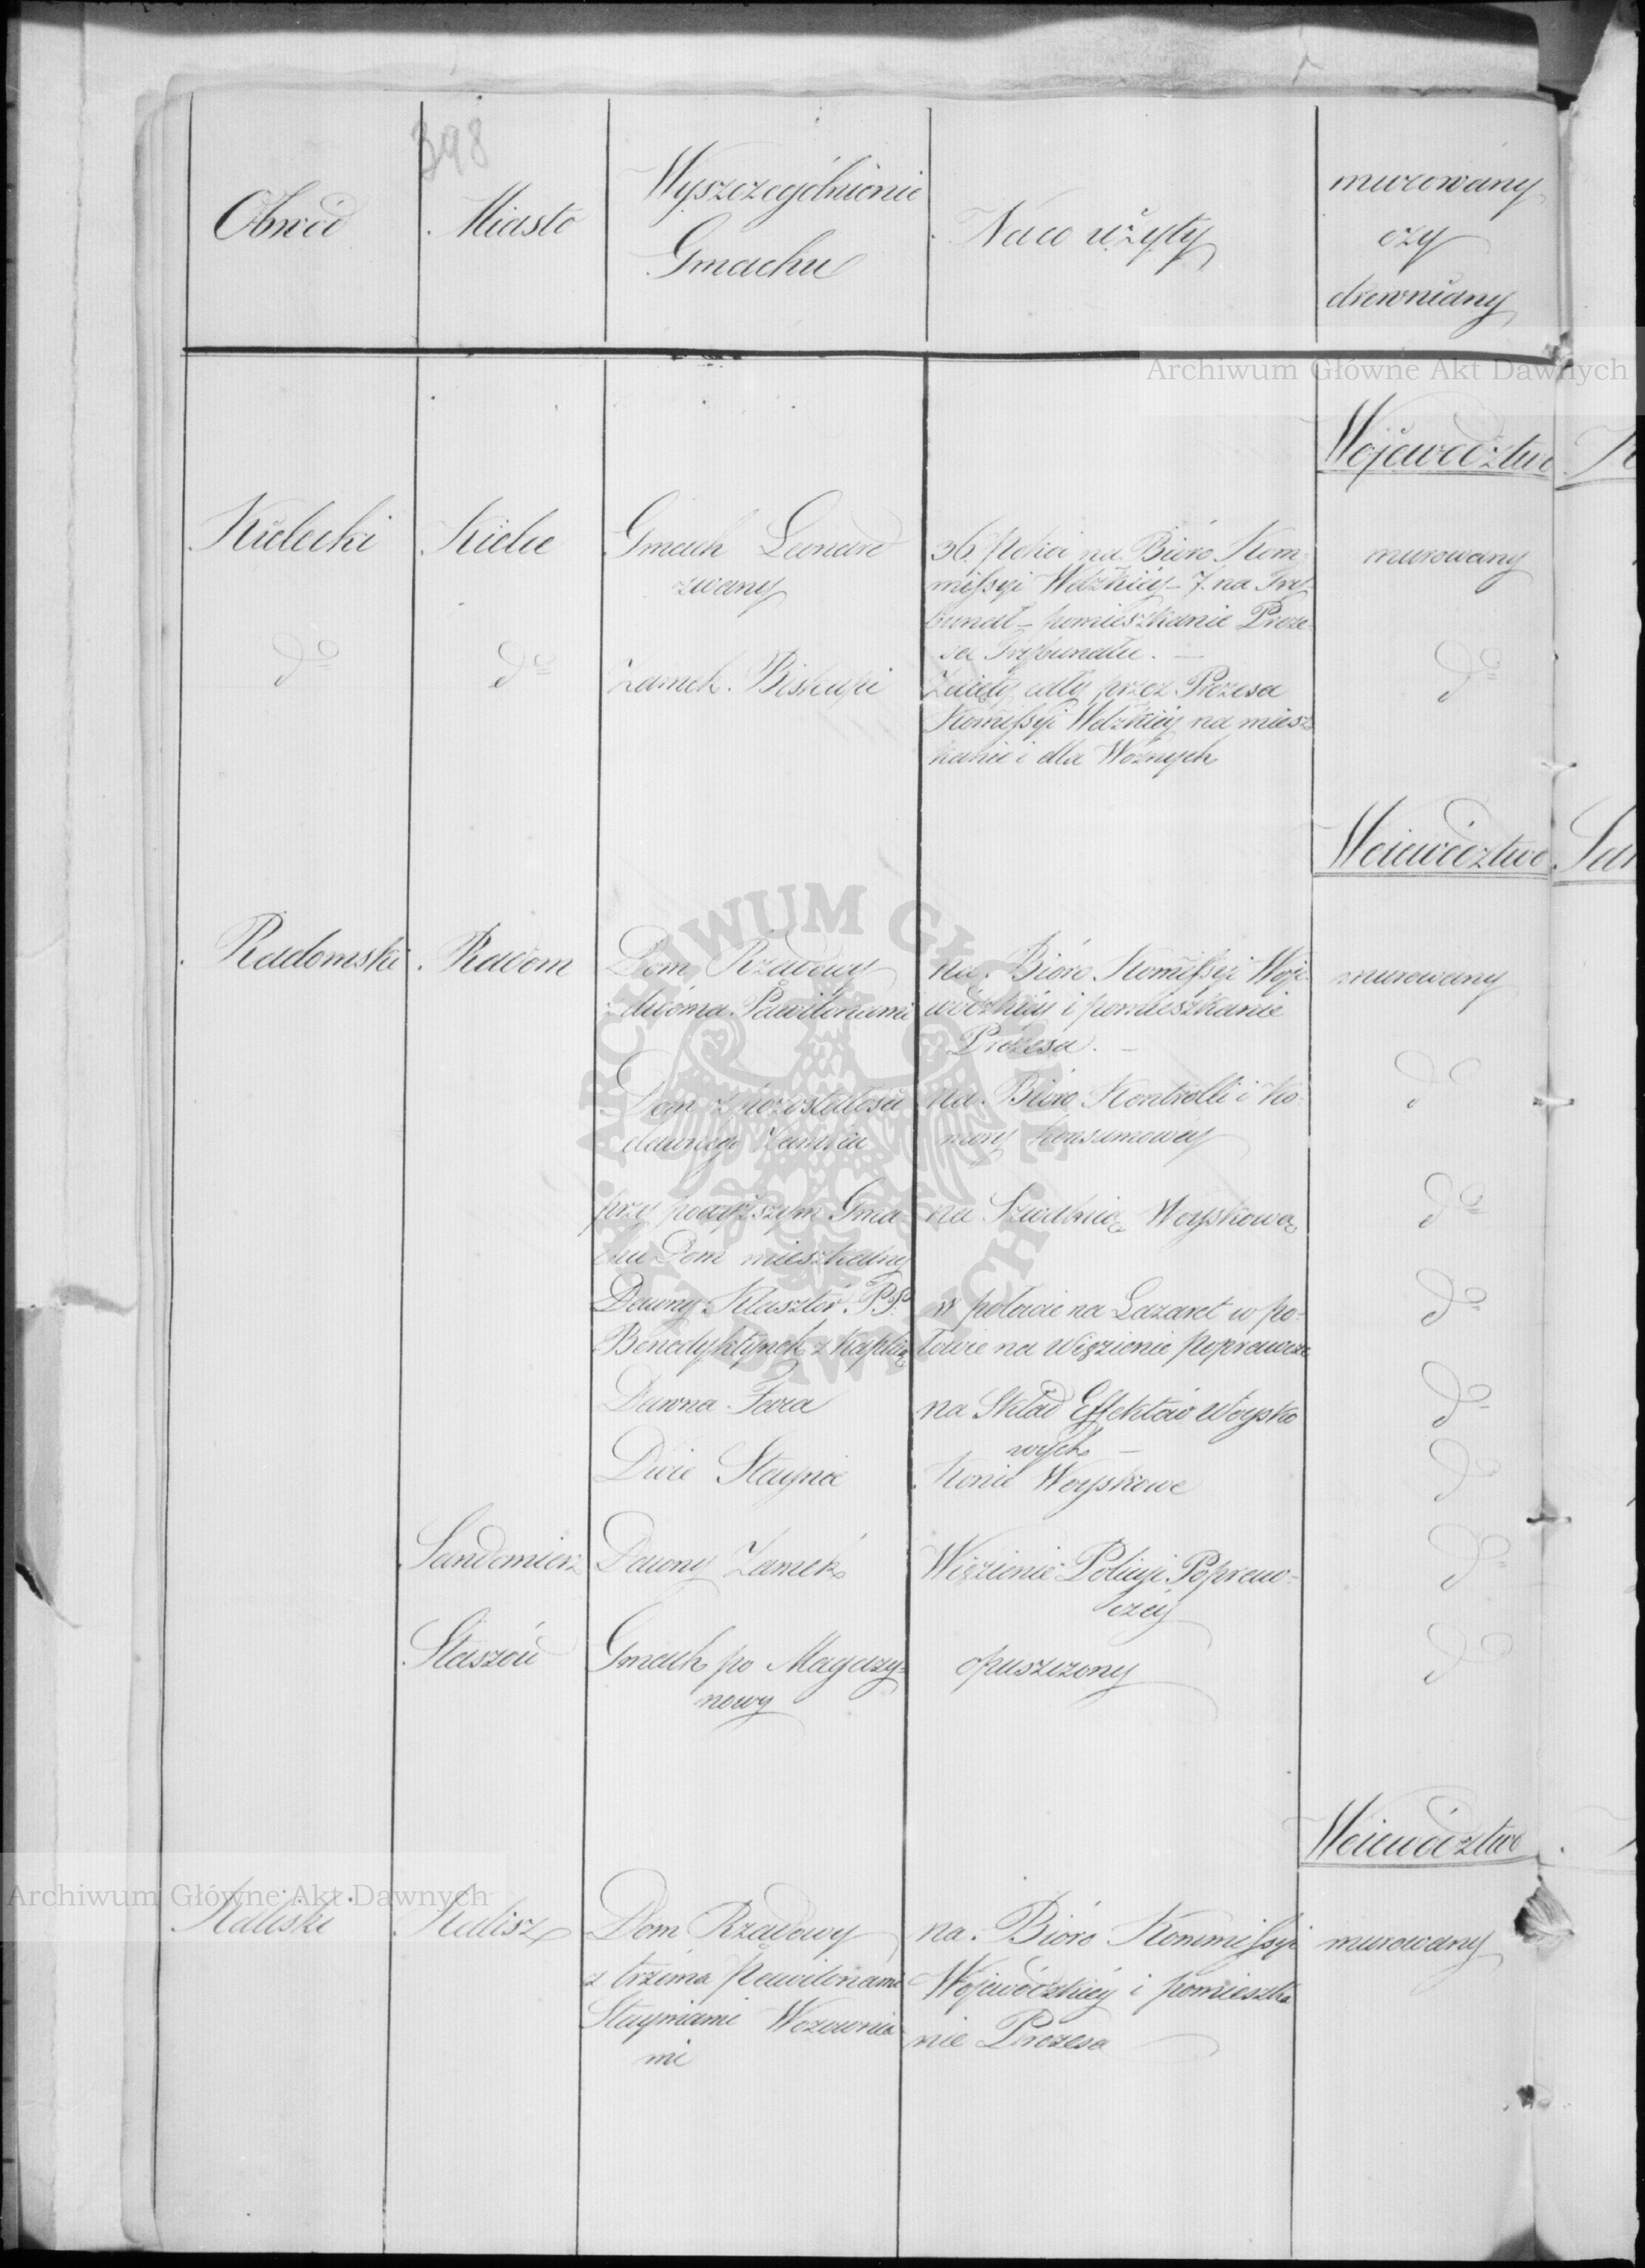 398
Obwód
Miasto
Wyszczególnienie
Gmachu
Na co użyty
murowany
czy
drewniany
Archiwum Główne Akt Dawnych
Województwo
Kielecki
Kielce
Gmach Leonard
zwany
36 Pokoi na Bióro Kom-
missyi Wdzkiéy – 7. na Try-
bunał – pomieszkanie Preze-
sa Trybunału. –
murowany
do
do
Zamek Biskupi
Zaięty cały przez Prezesa
Kommissyi Wdzkiéy na miesz-
kanie i dla Woźnych
do
Woiewództwo
Radomski
Radom
Dom Rządowy
z dwóma Pawilonami
na Bióro Kommissyi Woje-
wódzkiéy i pomieszkanie
Prezesa. –
murowany
Dom z pozostałości
dawnego Zamku
na Bióro Kontrolli i Ko-
mory konsumowey
do
przy powyższym Gma-
chu Dom mieszkalny
na Szwalnią Woyskową
do
Dawny Klasztor PP.
Benedyktynek z Kaplicą
w połowie na Lazaret w po-
łowie na więzienie poprawcze
do
Dawna Fara
na Skład Effektów Woysko
wych –
do
Dwie Staynie
Konie Woyskowe
do
Sandomierz
Dawny Zamek
Więzienie Policyi Popraw-
czéy
do
Staszów
Gmach po Magazy-
nowy
opuszczony
do
Woiewództwo
Archiwum Główne Akt Dawnych
Kaliski
Kalisz
Dom Rządowy
z trzema Pawilonami
Stayniami Wozownia-
mi
na Bióro Kommissyi
Wojewódzkiéy i pomieszka
nie Prezesa
murowany
ARCHIWUM GŁÓWNE AKT DAWNYCH